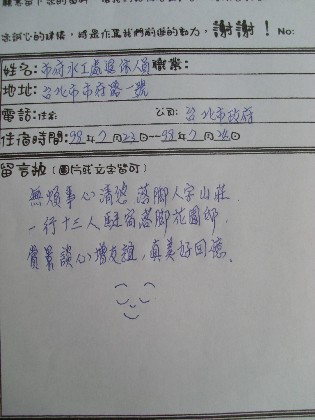 您誠心的建議，將是作為我們前進的動力，謝謝！ No:
姓名: 市府水工處退休人員 職業:
地址: 台北市市府路一號
電話: 住家: 公司: 台北市政府
住宿時間: 98年7月23日--98年7月24日
留言板 (圖片或文字皆可)
無煩事心清悠 落腳人字山莊.
一行十三人駐宿落腳花園邨,
賞景談心增友誼,真美好回憶.